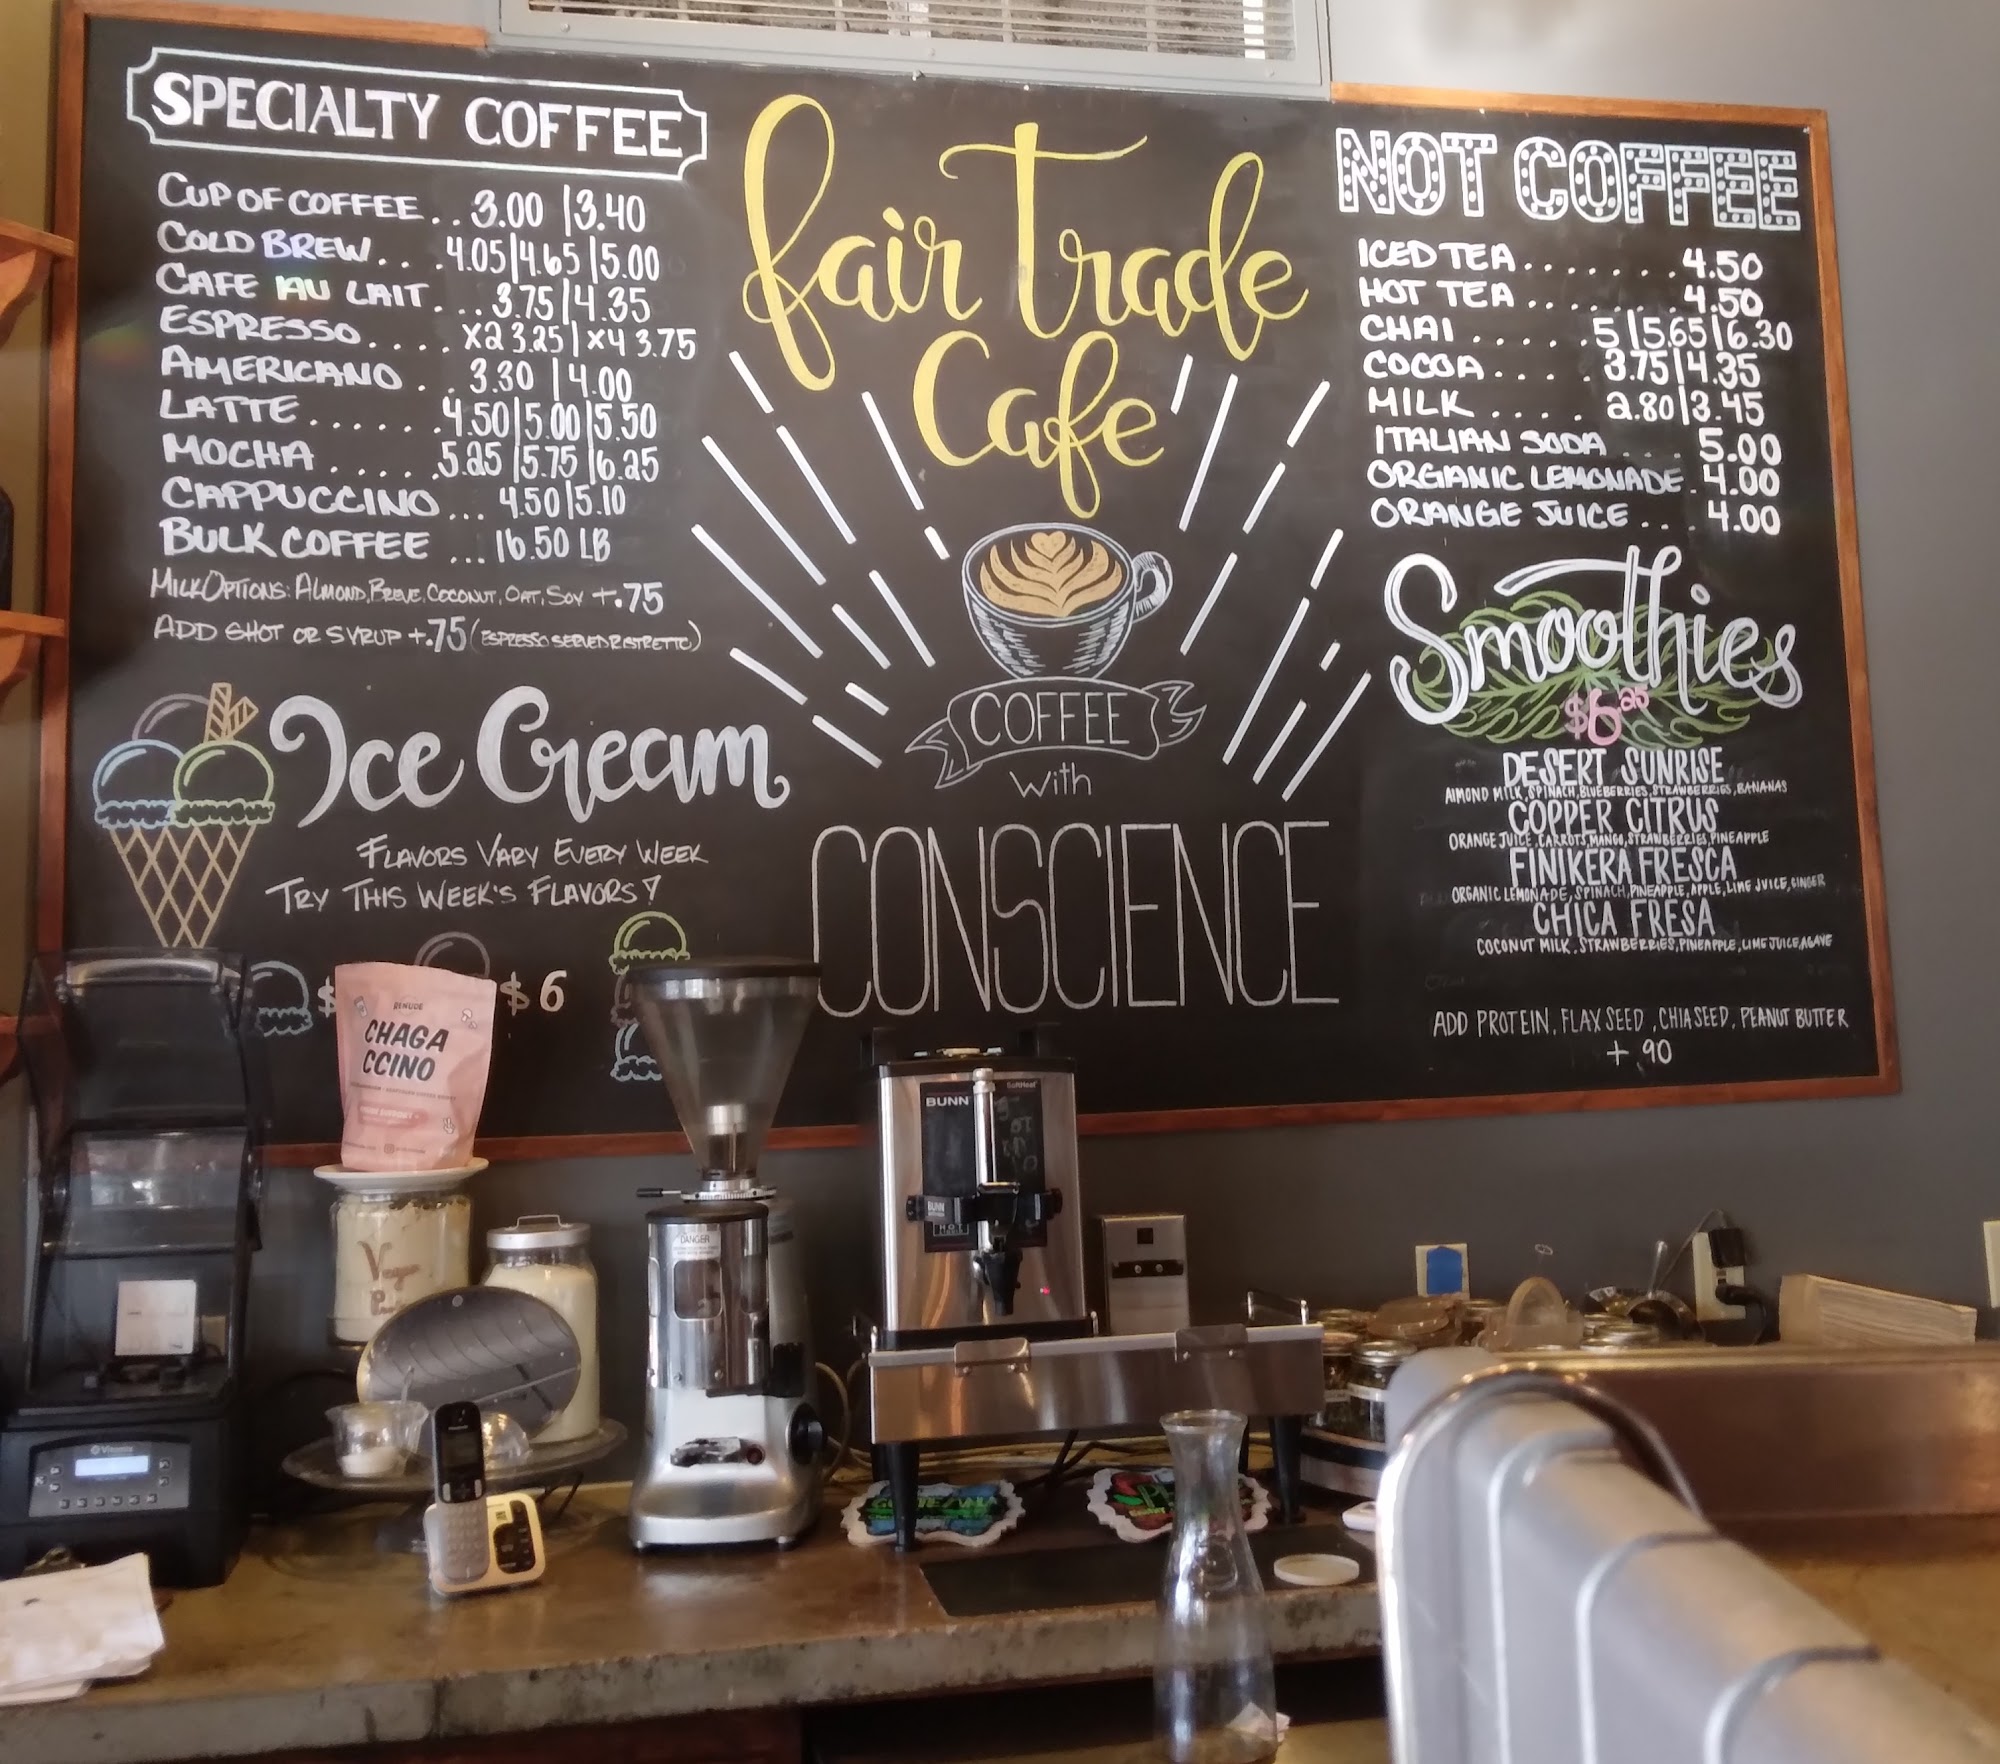 SPECIALTY COFFEE
CUP OF COFFEE .. 3.00 | 3.40
COLD BREW ... 4.05 | 4.65 | 5.00
CAFE AU LAIT ... 3.75 | 4.35
ESPRESSO ..... x2 3.25 | x4 3.75
AMERICANO .. 3.30 | 4.00
LATTE ...... 4.50 | 5.00 | 5.50
MOCHA ..... 5.25 | 5.75 | 6.25
CAPPUCCINO ... 4.50 | 5.10
BULK COFFEE ... 16.50 LB
MILK OPTIONS: ALMOND, BREVE, COCONUT, OAT, SOY +.75
ADD SHOT OR SYRUP +.75 (ESPRESSO SERVED RISTRETTO)
Ice Cream
FLAVORS VARY EVERY WEEK
TRY THIS WEEK'S FLAVORS!
$
$6
fair trade
Cafe
COFFEE
with
CONSCIENCE
NOT COFFEE
ICED TEA ....... 4.50
HOT TEA ....... 4.50
CHAI ..... 5 | 5.65 | 6.30
COCOA ..... 3.75 | 4.35
MILK ..... 2.80 | 3.45
ITALIAN SODA ... 5.00
ORGANIC LEMONADE . 4.00
ORANGE JUICE ... 4.00
Smoothies
$6.25
DESERT SUNRISE
ALMOND MILK, SPINACH, BLUEBERRIES, STRAWBERRIES, BANANAS
COPPER CITRUS
ORANGE JUICE, CARROTS, MANGO, STRAWBERRIES, PINEAPPLE
FINIKERA FRESCA
ORGANIC LEMONADE, SPINACH, PINEAPPLE, APPLE, LIME JUICE, GINGER
CHICA FRESA
COCONUT MILK, STRAWBERRIES, PINEAPPLE, LIME JUICE, AGAVE
ADD PROTEIN, FLAX SEED, CHIA SEED, PEANUT BUTTER
+ .90
RENUDE
CHAGA
CCINO
Vegan
DANGER
BUNN
SoftHeat
BUNN
HOT
Vitamix
Panasonic